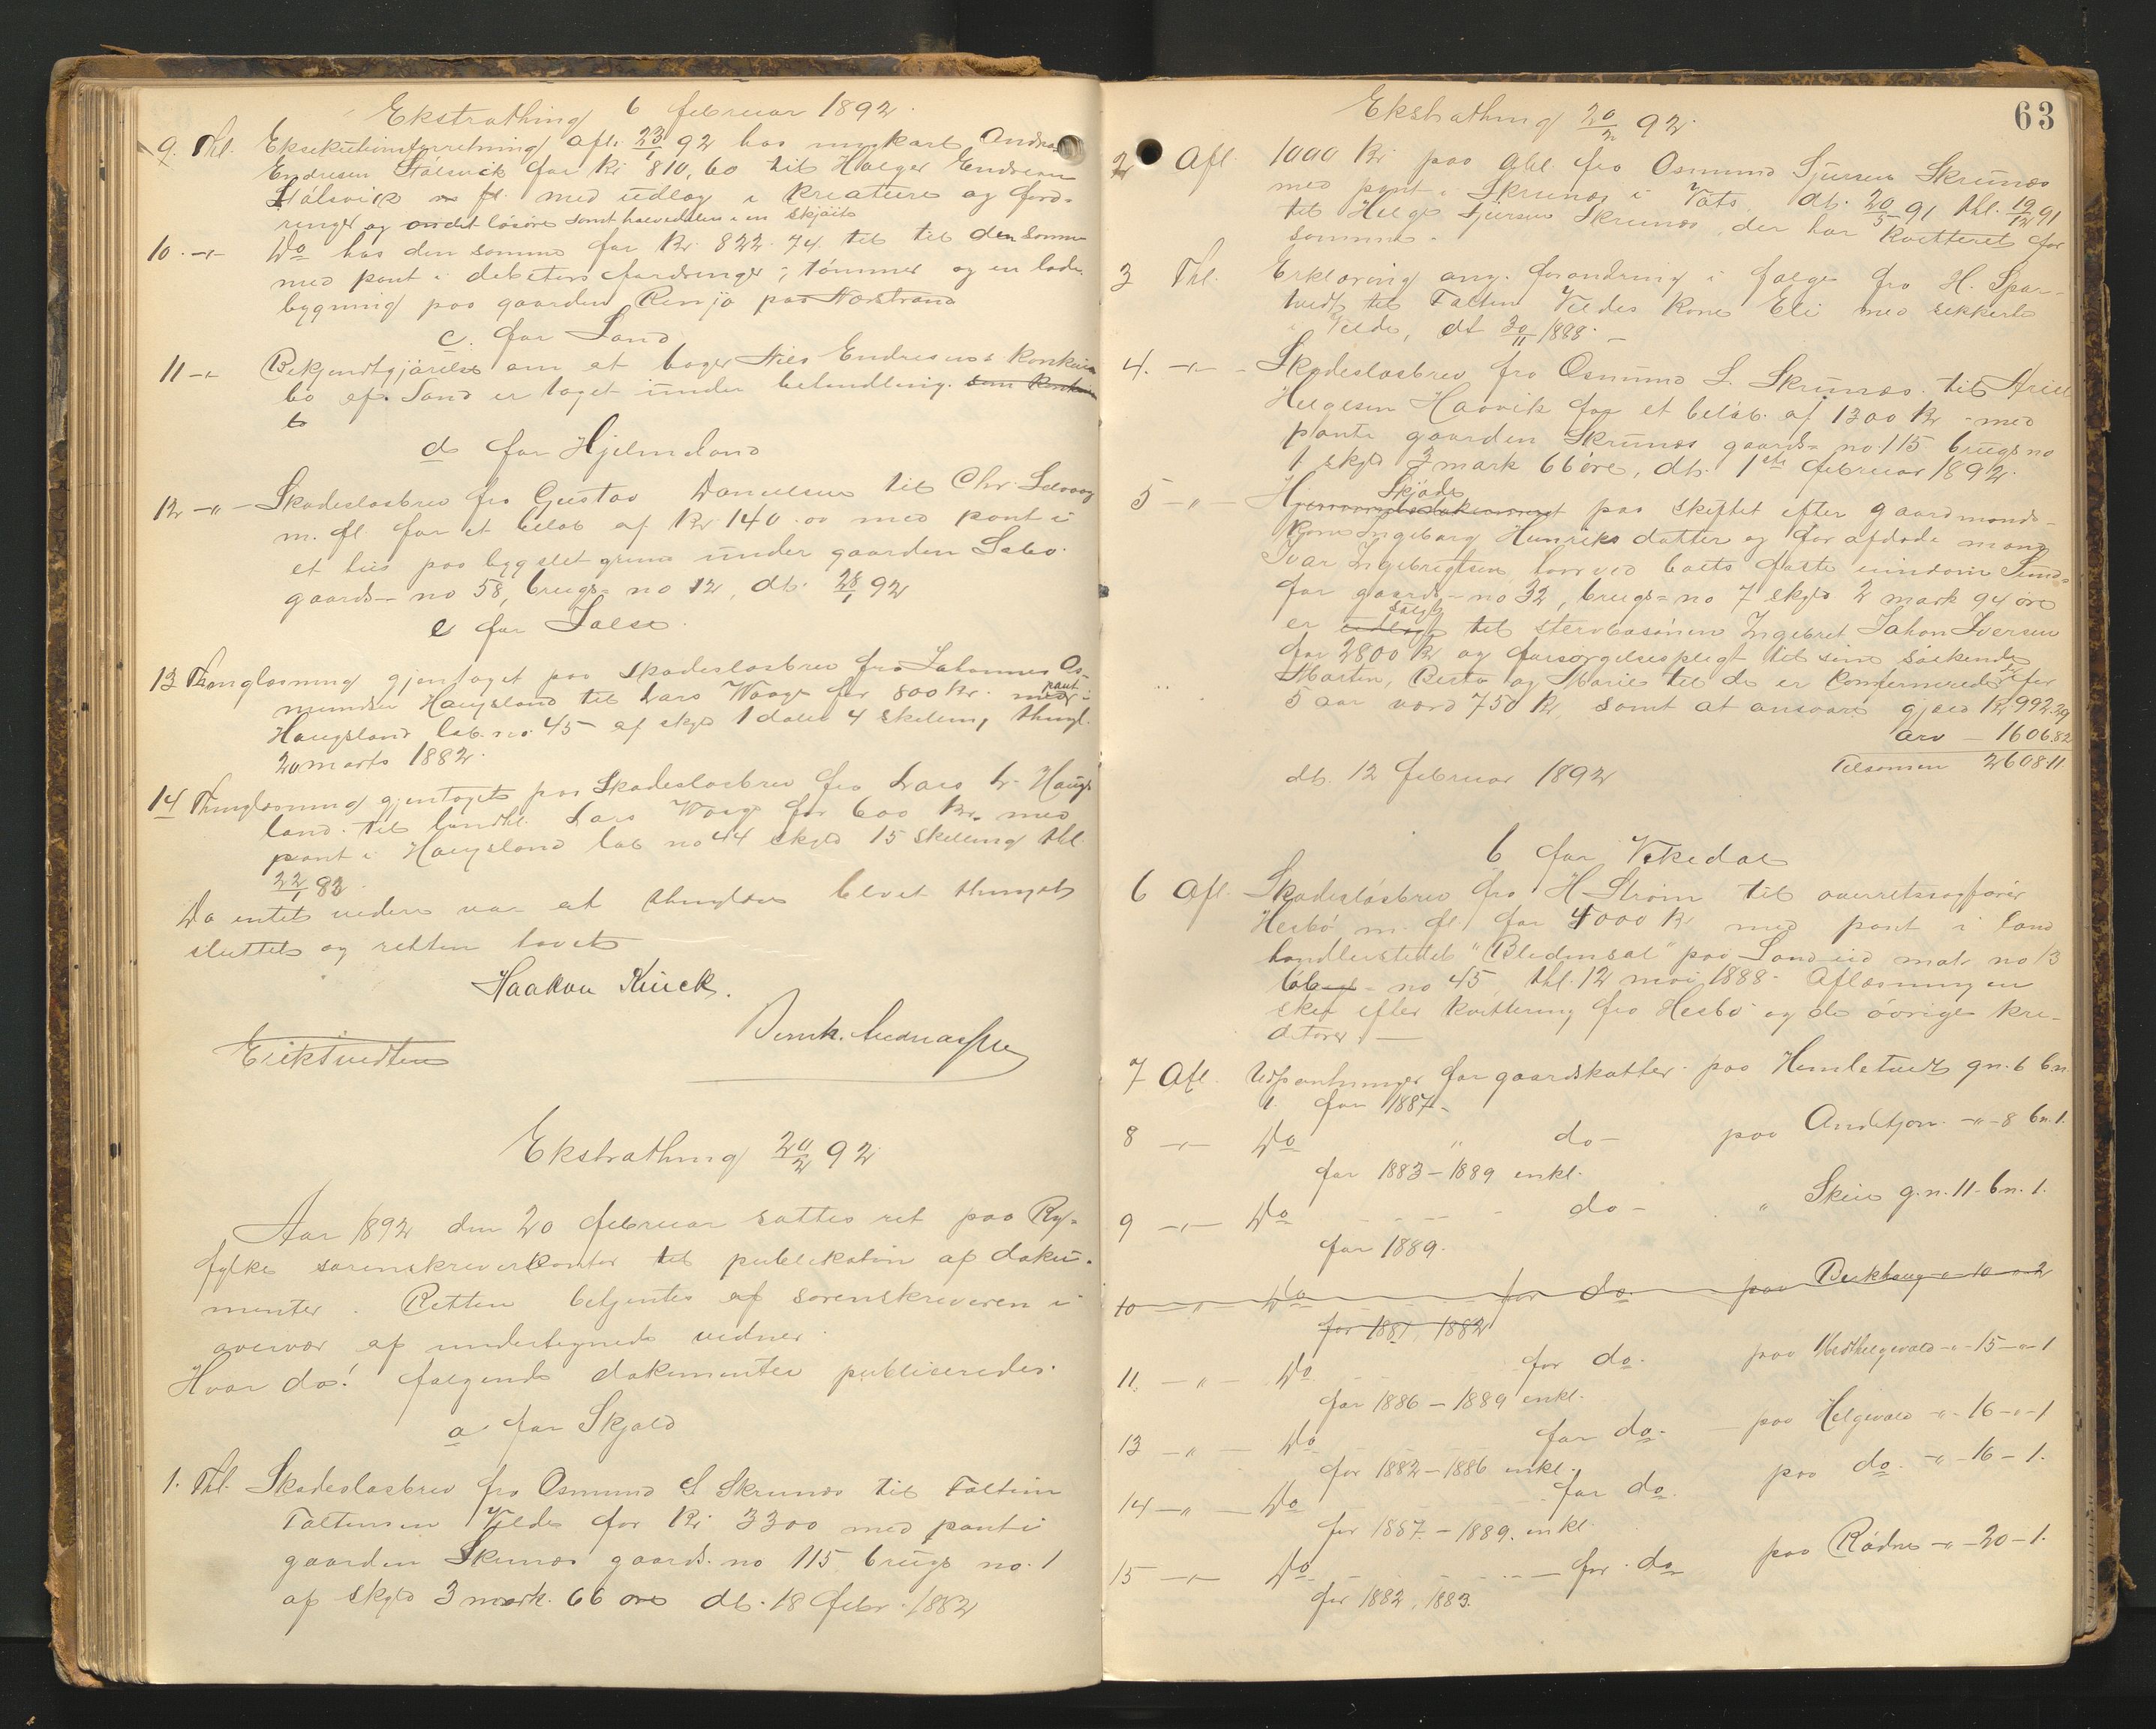 Ekstrathing 6 februar 1892.
9. Thl. Eksekutionsforretning afl. 23/1 92 hos ungkarl Andreas
Endresen Stålsvick for Kr 810,60 til Holger Endresen
Stålsvick m fl. med udlæg i kreature og ford-
ringer og andet løsøre samt halvedelen i en skjøite
10. -"- Do hos den samme for Kr. 822.74 til til den samme
med pant i debitors fordringer; tømmer og en lade-
bygning paa gaarden Renjo paa Norstrand
c. for Sand
11 -"- Bekjendtgjørelse om at boger Nils Endresens konkurs
bo af Sand er taget under behandling. som konkurs
b
d for Hjelmeland
12 -"- Skadesløsbrev fra Gustav Danielsen til Chr.
m. fl. for et beløb af Kr 140.00 med pant i
et hus paa bygslet grund under gaarden Sabo.
gaards- no 58, brugs- no 12, dt. 28/1 92
e for Jælse.
13 Thinglæsning gjentaget paa skadesløsbrev fra Johannes Os-
mundsen Haugsland til Lars Waage for 800 kr. med pant i
Haugsland løb. no 45 af skyld 1 daler 4 skilling, thingl.
20 marts 1882.
14 Thinglæsning gjentaget paa Skadesløsbrev fra Lars L. Haugs
land til landhl. Lars Waage for 600 kr. med
pant i Haugsland løb no 44 skyld 15 skilling thl.
22/1 82.
Da intet videre var at thinglæse blevet thinget
sluttet og retten hævet
Haakon Kinck.
Ekstrathing 20/2 92
Aar 1892 den 20 februar sattes ret paa Ry-
fylke sorenskriverkontor til publikation af doku-
menter. Retten betjentes af sorenskriveren i
overvær af undertegnede vidner.
Hvor da! følgende dokumenter publiseredes.
a for Skjold
1. Thl. Skadesløsbrev fra Osmund S Skrunæs til Taltin
Taltinsen Vilde for Kr 3300 med pant i
gaarden Skrunæs gaards. no 115 brugs no. 1
af skyld 3 mark. 66 øre dt. 18 febr. 1882
Ekstrathing 20/2 92.
63
2 Afl 1000 Kr. paa obl. fra Osmund Sjursen Skrunæs
med pant i Skrunæs i Vats. dt. 20/5 91 thl. 19/12 91
til Helge Sjursen Skrunæs, der har kvitteret for
summen.
3 Thl. Erklæring ang. forandring i følge fra H. Spar-
tvedt til Taltin Vildes kone Eli med sikkerh
i Vilde, dt 30/11 1888. -
4. -"- Skadesløsbrev fra Osmund S. Skrunæs til
Helgesen Haavik for et beløb af 1300 kr - med
pant i gaarden Skrunæs gaards- no. 115 brugs no
1 skyld 3 mark 66 øre, dt. 1ste februar 1892.
5 -"- Skjøde paa skiftet efter gaardmands-
kone Ingeborg Henriks datter og før afdøde mand
Ivar Ingebrigtsen, hvorved boets faste eiendom Sund-
før gaards- no 32, brugs- no 7 skyld 2 mark 94 øre
er udlagt solgt til stervbosønnen Ingebret Johan Iversen
for 2800 kr og forsørgelsespligt til sine søskende
Marten, Berta og Marie til de er konfirmerede for
5 aar værd 750 Kr, samt at ansvare gjæld Kr 992.29
arv - 1606.82
Tilsammen 2608.11
dt. 12 februar 1892
b for Vikedal
6 Afl. Skadesløsbrev fra H Strøm til overretssagfører
Hesbø m. fl. for 4000 kr med pant i land
handlerstedet "Bledensal" paa Sandeid matr no 13
løb - no 45, thl. 12 mai 1888. Aflæsningen
sker efter kvittering fra Hesbø og de øvrige kre-
ditorer. -
7 Afl. Udpantninger for gaardskatter paa Hemletvedt gn. 6 bn.
1. for 1887 -
8 -"- Do " do - paa -"- 8 bn. 1.
for 1883 - 1889 inkl.
9 -"- Do do - " Skeie g.n. 11. bn. 1.
for 1889.
10 -"- Do for do. paa -"- 10 -"- 2
for 1881, 1882
11. -"- Do for do. paa -"- 15 -"- 1
for 1886 - 1889 inkl.
13 -"- Do for do. paa Helgevold -"- 16 -"- 1
for 1882 - 1886 inkl.
14 -"- Do for do. paa do. -"- 16 - 1.
for 1887 - 1889. inkl.
15 -"- Do for do paa Rådne -"- 20 - 1.
for 1882, 1883.